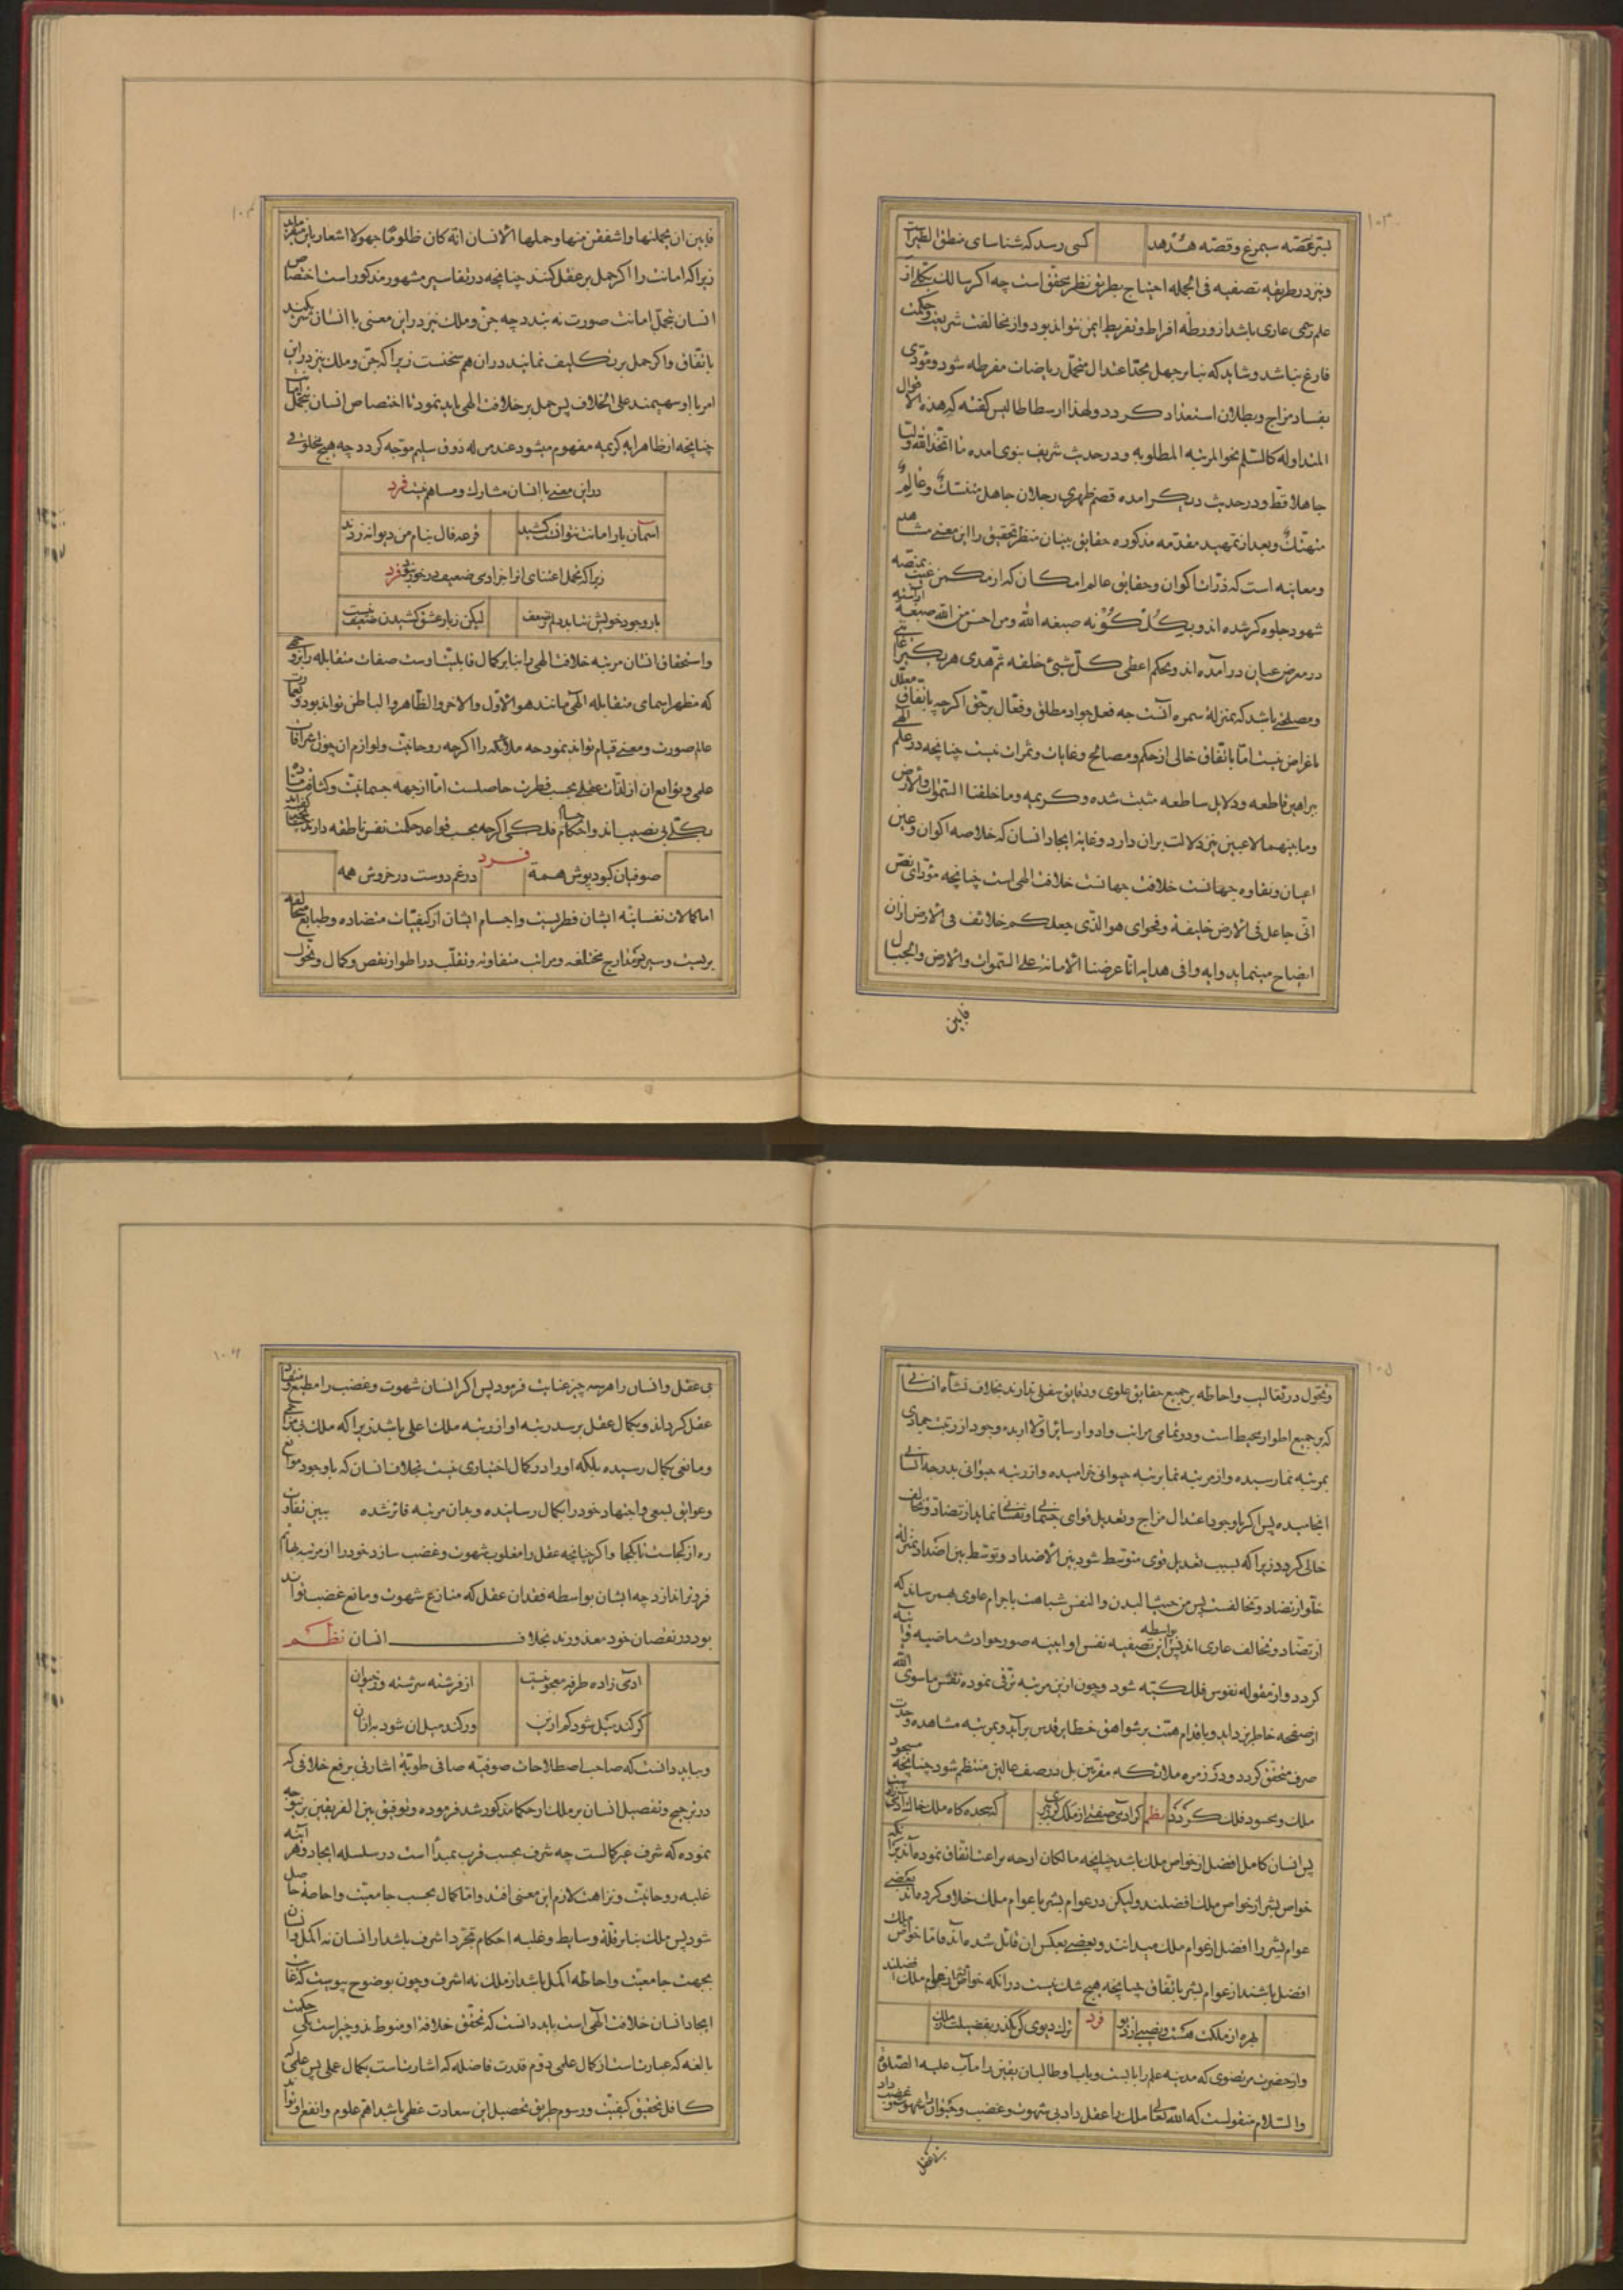 ۱۰۳
بسر غصّه سیمرغ و قصّه هُدهد کسی رسد که شناسای منطق الطیرست
و نیز در طریقه تصفیه فی الجمله احتیاج بطریق نظر محقق است چه اگر سالک بکلی از
علم رسمی عاری باشد از ورطه افراط و تفریط ایمن نتواند بود و از مخالفت شریعت و حکمت
فارغ نباشد و شاید که بنا بر جهل بحدّ اعتدال متحمّل ریاضات مفرطه شود و مؤدّی
بفساد مزاج و بطلان استعداد کردد و لهذا ارسطاطالیس کفته که هذه الاقوال
المتداوله کالسلّم نحو المرتبه المطلوبه و در حدیث شریف نبوی امده ما اتخذ الله ولیا
جاهلا قط و در حدیث دیکر امده قصم ظهری رجلان جاهل متنسّک و عالم
متهتّک و بعد از تمهید مقدّمه مذکوره حقایق بینان منظر تحقیق را این معنی مشاهد
و معاینه است که ذرّات اکوان و حقایق عالم امکان که از مکمن غیب بمنصّه
شهود جلوه کر شده اند و بکُلکُونه صبغه الله و من احسن من الله صبغه اراسته
در معرض عیان درآمده اند و بحکم اعطی کلّ شیئ خلقه ثمّ هدی هر یک را غایتی
و مصلحتی باشد که بمنزلهٔ ثمره آنست چه فعل جواد مطلق و فعّال برحق اکر چه باتفاق معلّل
باغراض نیست امّا باتفاق خالی از حکم و مصالح و غایات و ثمرات نیست چنانچه در علم الهی
ببراهین قاطعه و دلایل ساطعه مثبت شده و کریمه و ما خلقنا السّموات و الارض
و ما بینهما لاعبین نیز دلالت بران دارد و غایة ایجاد انسان که خلاصه اکوان و عین
اعیان و نقاوه جهانست خلافت جهانست خلافت الهی است چنانچه مؤدّای نصّ
انّی جاعل فی الارض خلیفة و فحوای هو الذّی جعلکم خلائف فی الارض ازان
ایضاح مینماید و ایه وافی هدایه انّا عرضنا الامانة علی السّموات و الارض و الجبال
فابین
۱۰۴
فابین ان یحملنها و اشفقن منها و حملها الانسان انّه کان ظلومًا جهولا اشعار باین
زیرا که امانت را اکر حمل بر عقل کنند چنانچه در تفاسیر مشهور مذکور است اختصاص
انسان بتحمّل امانت صورت نه بندد چه جنّ و ملک نیز در این معنی با انسان شریکند
باتفاق و اکر حمل بر تکلیف نمایند دران هم سخنست زیرا که جنّ و ملک نیز در این
امر با او سهیمند علی الخلاف پس حمل بر خلافت الهی باید نمود تا اختصاص انسان بتحمّل
چنانچه از ظاهر ایه کریمه مفهوم میشود عند من له ذوق سلیم موجّه کردد چه هیچ مخلوقی
در این معنی با انسان مشارک و مساهم نیست فرد
آسمان بار امانت نتوانست کشید قرعه فال بنام من دیوانه زدند
زیرا که تحمل اعتنای انرا جز ادمی ضعیف در خور نبود فرد
بار وجود خویش نشاید دلم ز ضعف لیکن ز بار عشق کشیدن ضعیف نیست
و استحقاق انسان مرتبه خلافت الهی را بنا بر کمال قابلیّت اوست صفات متقابله را بروجهی
که مظهر اسمای متقابله الهی مانند هو الاوّل و الاخر و الظّاهر و الباطن تواند بود و بعمارت
عالم صورت و معنی قیام تواند نمود چه ملائکه را اکر چه روحانیّت و لوازم ان چون اشراقات
علمی و توابع ان از لذّات عقلی بحسب فطرت حاصلست امّا از جهه جسمانیّت و کثافت مادّه
بکلّی بی نصیب اند و اجسام فلکی اکر چه بحسب قواعد حکمت نفس ناطقه دارند
فرد
صوفیان کبود پوش همه در غم دوست در خروش همه
اما کمالات نفسانیّه ایشان فطریست و اجسام ایشان از کیفیّات متضاده و طبایع مخالفه
بریست و سیر در مدارج مختلفه و مراتب متفاوته و تقلّب در اطوار نقص و کمال و تحوّل
۱۰۵
و تحوّل در تقالیب و احاطه بر جمیع حقایق علوی و دقایق سفلی ندارند بخلاف نشأه انسانی
که بر جمیع اطوار محیط است و در تمامی مراتب و ادوار سایر اوّلا از بدء وجود از رتبت جمادی
بمرتبه نما رسیده و از مرتبه نما برتبه حیوانی خرامیده و از رتبه حیوانی بدرجه انسانی
انجامیده پس اکر با وجود اعتدال مزاج و تعدیل قوای جسمانی و نفسانی نماید از تضاد و تخالف
خالی کردد زیرا که بسبب تعدیل قوی متوسط شود بین الاضداد و توسّط بین اضداد بمنزله
خلوّ از تضاد و تخالفست پس من حیث البدن و النفس شباهت باجرام علوی بهم رساند که
از تضاد و تخالف عاری اند پس بواسطه این تصفیه نفس او آیینه صور حوادث ماضیه و آتیه
کردد و از مقوله نفوس فلکیّه شود و چون از این مرتبه ترقی نموده نقش ما سوی الله
از صفحه خاطر بزداید و باقدام همّت بر شواهق خطایر قدس برآید و بمرتبه مشاهده وحدت
صرف متحقق کردد و در زمره ملائکه مقرّبین بل در صف عالین منتظم شود چنانچه مسجود
ملک و محسود فلک کردد نظم کر آدمی صفتی از ملک کرو ببری که سجده کاه ملک خاک آدمی
پس انسان کامل افضل از خواص ملک باشد چنانچه مالکان ازمّه براعت اتفاق نموده اند بر آنکه
خواص بشر از خواص ملک افضلند و لیکن در عوام بشر با عوام ملک خلاف کرده اند بعضی
عوام بشر را افضل از عوام ملک میدانند و بعضی بعکس ان قائل شده اند و امّا خواص ملک
افضل باشند از عوام بشر باتفاق چنانچه هیچ شک نیست در انکه خواص بشر از عوام ملک افضلند
بهره از ملکت هست و نصیبی از دیو فرد ترک دیوی کن بکذر بفضیلت ز ملک
و از حضرت مرتضوی که مدینه علم را بابست و باب او طالبان یقین را مآب علیه الصّلوة
و السّلام منقولست که الله تعالی ملک را عقل داد بی شهوت و غضب و حیوان را شهوت و غضب داد
بی عقل
۱۰۶
بی عقل و انسان را هر سه چیز عنایت فرمود پس اکر انسان شهوت و غضب را مطیع و منقاد
عقل کرداند و بکمال عقل برسد رتبه او از رتبه ملک اعلی باشد زیرا که ملک بی مزاحمی
و مانعی بکمال رسیده بلکه او را در کمال اختیاری نیست بخلاف انسان که با وجود موانع
و عوایق بسعی و اجتهاد خود را بکمال رسانیده و بدان مرتبه فائز شده ببین تفاوت
ره از کجاست تا بکجا و اکر چنانچه عقل را مغلوب شهوت و غضب سازد خود را از مرتبه بهائم
فروتر اندازد چه ایشان بواسطه فقدان عقل که منازع شهوت و مانع غضب تواند
بود در نقصان خود معذورند بخلاف انسان نظم
ادمی زاده طرفه معجونیست از فرشته سرشته وز حیوان
کر کند میل این شود کم از این ور کند میل آن شود به از آن
و بباید دانست که صاحب اصطلاحات صوفیّه صافی طویّهٔ اشارتی برفع خلافی که
در ترجیح و تفضیل انسان بر ملک از حکما مذکور شد فرموده و توفیق بین الفریقین برین وجه
نموده که شرف غیر کمالست چه شرف بحسب قرب بمبدأ است در سلسله ایجاد و هر آینه
غلبه روحانیّت و نزاهت لازم این معنی افتد و امّا کمال بحسب جامعیّت و احاطه حاصل
شود پس ملک بنا بر قلّة وسایط و غلبه احکام تجرّد اشرف باشد از انسان نه اکمل و انسان
بجهت جامعیّت و احاطه اکمل باشد از ملک نه اشرف و چون بوضوح پیوست که غایت
ایجاد انسان خلافت الهی است باید دانست که تحقّق خلافة او منوط بدو چیز است یکی حکمت
بالغه که عبارتست از کمال علمی دوّم قدرت فاضله که اشارتست بکمال عملی پس علمی که
کافل تحقیق کیفیّت و رسوم طریق تحصیل این سعادت عظمی باشد اهمّ علوم و انفع او تواند